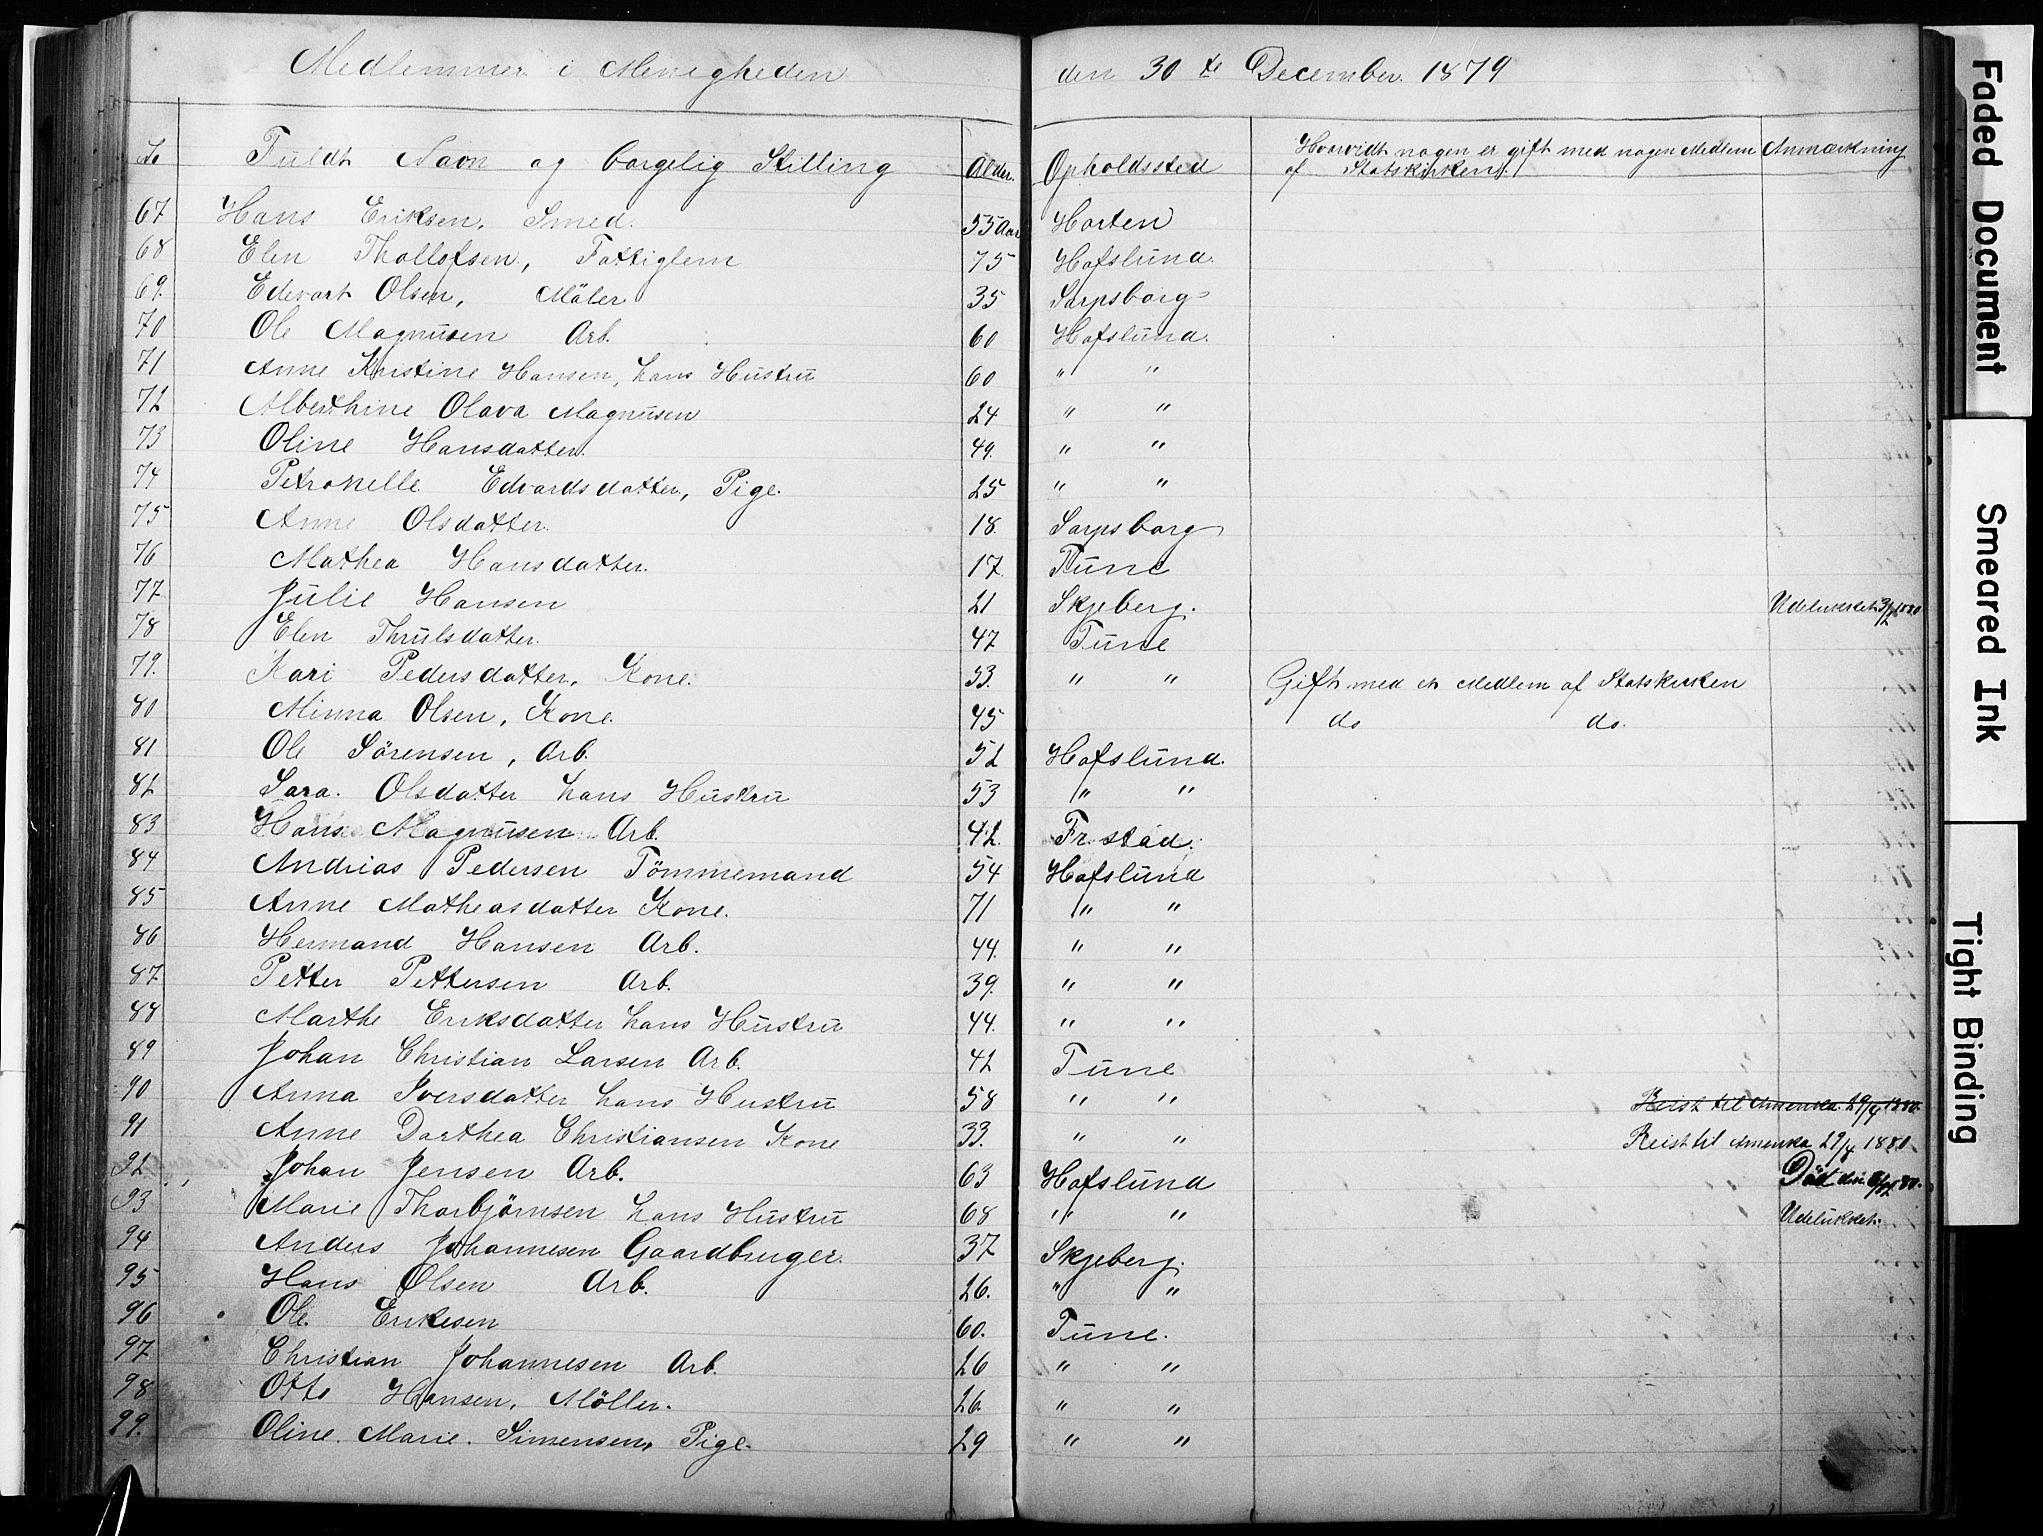 Medlemmer i Menigheden den 30te December 1879
No Fuldt Navn og borgelig Stilling Alder. Opholdssted Hvorvidt nogen er gift med nogen Medlem af Statskirken. Anmærkning
67 Hans Eriksen, Smed. 55 Aar Horten
68 Elen Thollofsen, Fattiglem 75 Hafslund.
69. Edevart Olsen, Mäler 35 Sarpsborg
70 Ole Magnusen Arb. 60 Hafslund.
71 Anne Kristine Hansen, hans Hustru 60 " "
72 Alberthine Olava Magnusen 24 " "
73 Oline Hansdatter. 49. " "
74 Petronelle Edvardsdatter, Pige. 25 " "
75 Anne Olsdatter. 18. Sarpsborg
76 Mathea Hansdatter. 17 Tune
77 Julie Hansen 21 Skjeberg. Udelukket 3/2 1880
78 Elen Thrulsdatter. 47 Tune
79. Kari Pedersdatter, Kone. 53. " " Gift med et Medlem af Statskirken
80 Minna Olsen, Kone. 45 do do.
81 Ole Sörensen, Arb. 52 Hafslund.
82 Sara. Olsdatter hans Hustru 53 " "
83 Hans Magnusen Arb. 42. Fr. stad.
84 Andrias Pedersen Tömmemand 54 Hafslund
85 Anne Matheasdatter Kone. 71 " "
86 Hermand Hansen Arb. 44. " "
87 Petter Pettersen Arb. 39. " "
88 Marthe Eriksdatter hans Hustru 44. " "
89 Johan Christian Larsen Arb. 42 Tune
90 Anna Iversdatter hans Hustru 58 " " Reist til Amerika 29/4 1880.
91 Anne Dorthea Christiansen Kone 33. " " Reist til Amerika 29/4 1880.
92 Johan Jensen Arb. 63 Hafslund Död den 80.
93 Marie Thorbjørnsen hans Hustru 68 " " Udelukket.
94 Anders Johannesen Gaardbruger. 37 Skjeberg.
95 Hans Olsen Arb. 26. " "
96 Ole. Eriksen 60. Tune.
97 Christian Johannesen Arb. 26 " "
98 Otto Hansen, Möller. 26. " "
99. Oline. Marie. Simensen, Pige. 29 " "
Faded Document
Smeared Ink
Tight Binding